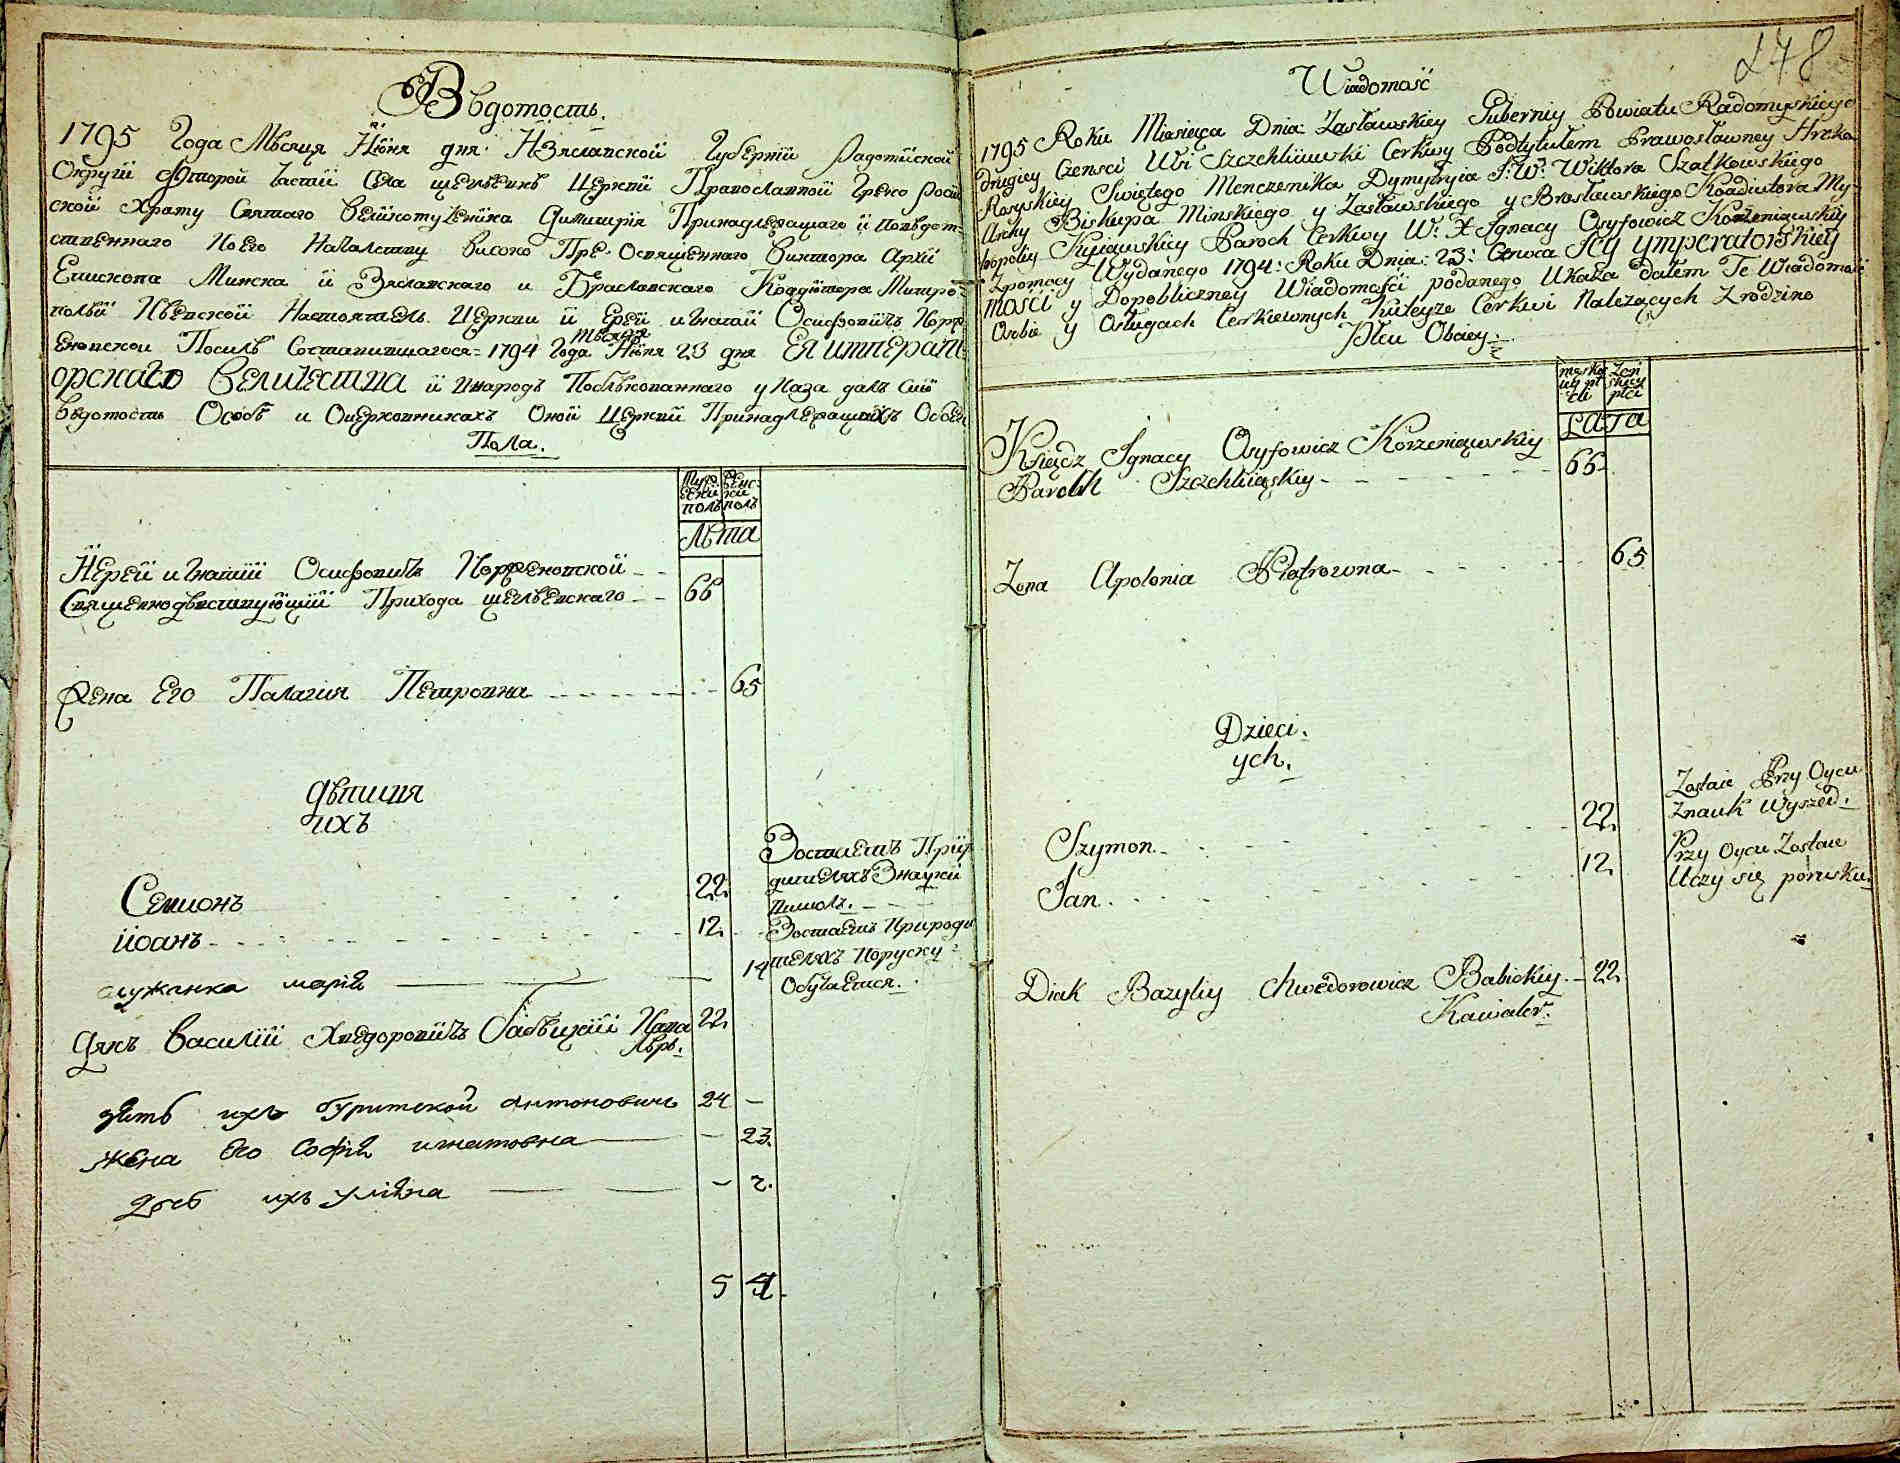 Вѣдомость.
1795 Года Мѣсяця Июня дня: Изяславской Губернии Радомиской
Округи второй Части Села Церкви Православной Греко росий
ской Храму Святаго Великомученика Димитрия Принадлежащаго и поведом
ственнаго по его Началству высоко Пре-Освященнаго Виктора Архи
Епископа Минска и Зяславскаго и Браславскаго Коадютора Митро-
полии Киевской Настоятель Церкви и Ерей игнатий Осифовичъ Корже
еновской Посилѣ Состоявшагося= 1794 Года Мѣсяця Июня 23 дня Ея императ
орскаго Величества и Указа далъ Сию
Вѣдомость Особѣ и Оцерковникахъ Оной Церкви Принадлежащихъ Обоего
Пола.
Мужеский полъ
Женский полъ
Лѣта
Иерей игнатий Осифовичъ Корженовской
Священнодѣйствующий Прихода - - 66
Жена Его Палагия Петровна - - - - - - 65
Дѣтиця
ихъ
Семионъ 22. Зостаетъ При ро
дителяхъ Знауки
пишолъ.
Иоанъ - - - - - - 12. Зостаетъ Природи
телехъ Поруску
Обучается.
служанка марія 14
Дякъ Василий Хведоровичъ Бабицкий Кава 22
лѣръ.
зять ихъ антоновичъ 24 —
жена его Софія игнатовна — 23.
дочь ихъ уліяна — 2.
5 4.
248
Wiadomość
1795 Roku Miesięca Dnia: Zasławskiey Guberniy Powiatu Radomyskiego
drugiey Czensci Wsi Cerkwy Podtytułem Prawosławney Hreko
Rosyskiey Swiętego Menczenika Dymytryia J: W: Wiktora Szatkowskiego
Archy Biskupa Minskiego y Zasławskiego y Brosławskiego Koadiutora My-
tropoliy Kyiewskiey Paroch Cerkwy W: X Ignacy Osyfowicz Korzeniąwskiy
Zpomocy Wydanego 1794: Roku Dnia: 23: Czerwca Jey ymperatorskiey
mości y Dopobliczney Wiadomości podanego Ukaza Dałem Te Wiadomość
Osobie y Osługach Cerkiewnych tuteyze Cerkwi Należących Zrodzino
Płeu Oboiey.
męskiey płci
Żeńskiey płci
LATA
Ksiądz Ignacy Osyfowicz Korzeniąwskiy
Paroch - - - - - 66
Zona Apolonia Piętrowna - - - - - - 65
Dzieci.
ych.
Szymon - - - - - - 22. Zostaie Przy Oycu
Znauk Wyszed.
Jan - - - - - - 12. Przy Oycu Zostaie
Uczy się porusku.
Diak Bazyliy Chwedorowicz Babickiy - 22
Kawaler.